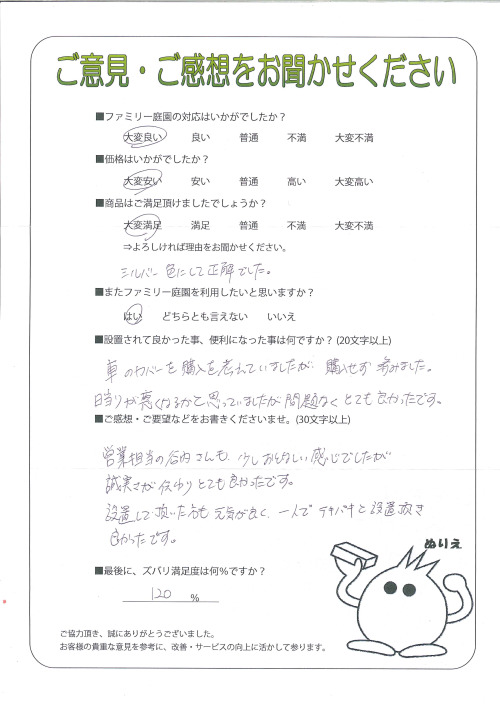 ご意見・ご感想をお聞かせください
■ファミリー庭園の対応はいかがでしたか?
大変良い 良い 普通 不満 大変不満
■価格はいかがでしたか?
大変安い 安い 普通 高い 大変高い
■商品はご満足頂けましたでしょうか?
大変満足 満足 普通 不満 大変不満
⇒よろしければ理由をお聞かせください。
シルバー色にして正解でした。
■またファミリー庭園を利用したいと思いますか?
はい どちらとも言えない いいえ
■設置されて良かった事、便利になった事は何ですか? (20文字以上)
車のカバーを購入を考えていましたが、購入せず済みました。
日当りが悪くなるかと思っていましたが問題なくとても良かったです。
■ご感想・ご要望などをお書きくださいませ。(30文字以上)
営業担当の谷内さんも、少しおとなしい感じでしたが
誠実さが伝わりとても良かったです。
設置して頂いた方も元気が良く、一人でテキパキと設置頂き
良かったです。
ぬりえ
■最後に、ズバリ満足度は何%ですか?
120 %
ご協力頂き、誠にありがとうございました。
お客様の貴重な意見を参考に、改善・サービスの向上に活かして参ります。